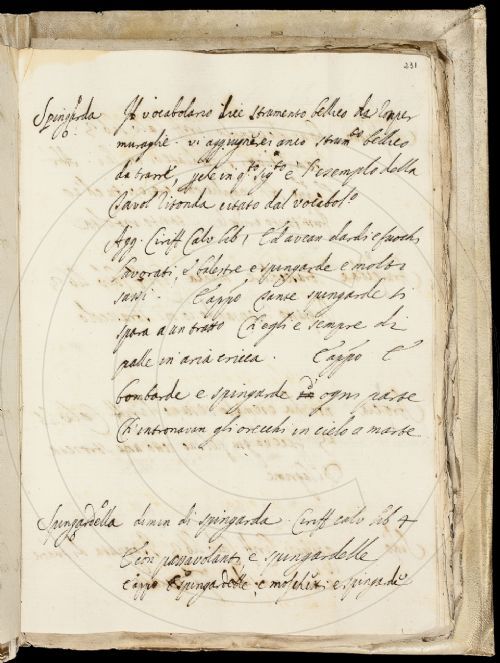 231
Spingarda Il vocabolario dice strumento bellico da romper
muraglie. vi aggiugnerei anco strum.to bellico
da trarre, che in q.to sig.to è l'esempio della
Tavol Ritonda citato dal vocabol.o
Agg. Ciriff Calv lib 1 Ed avean dardi e fuochi
lavorati, e balestre e spingarde e molti
sassi. E appo Tante spingarde si
spara a un tratto Ch'egli è sempre di
palle in aria ricca. E appo E
bombarde e spingarde da ogni parte
Ch'intronavan gli orecchi in cielo a marte
Spingardella dimin di spingarda. Ciriff calv lib 4
E con passavolanti, e spingardelle
e appo E spingardelle e moschetti e spingarde